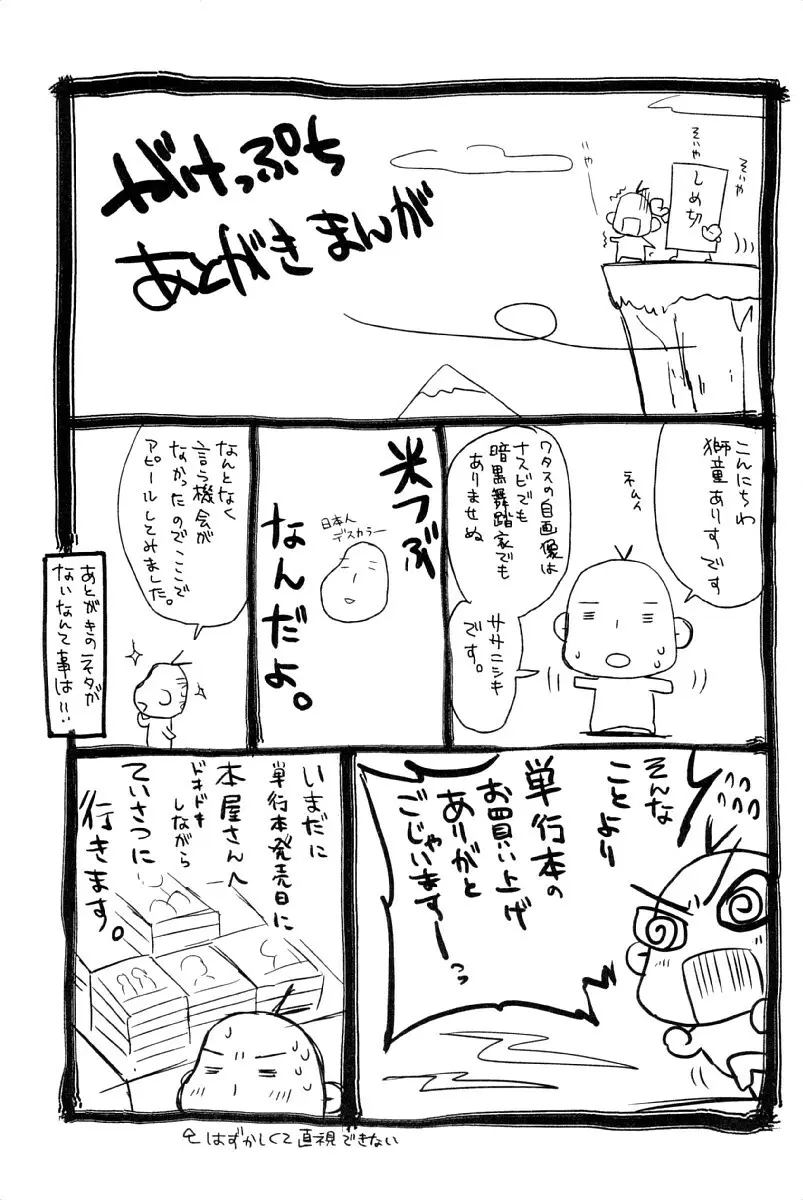 がけっぷち
あとがきまんが
そいや
そいや
しめ切
いや
こんにちわ
獅童ありすです
ネムイ
ワタスの自画像は
ナスビでも
暗黒舞踏家でも
ありませぬ
ササニシキ
です。
米つぶ
なんだよ。
日本人
デスカラー
なんとなく
言う機会が
なかったのでここで
アピールしてみました。
あとがきのネタが
ないなんて事は!!
そんな
ことより
単行本の
お買い上げ
ありがと
ごじゃい
ますーっっ
いまだに
単行本発売日に
本屋さんへ
ドキドキ
しながら
ていさつに
行きます。
はずかしくて直視できない